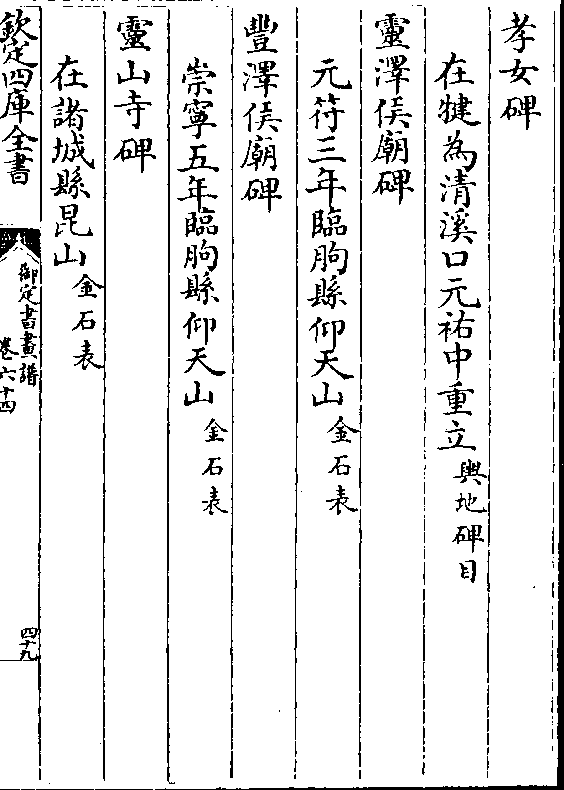 孝女碑
在犍為清溪口元祐中重立輿地碑目
靈澤侯廟碑
元符三年臨朐縣仰天山金石表
豐澤侯廟碑
崇寧五年臨朐縣仰天山金石表
靈山寺碑
在諸城縣昆山金石表
欽定四庫全書
御定書畫譜
卷六十四
四十九